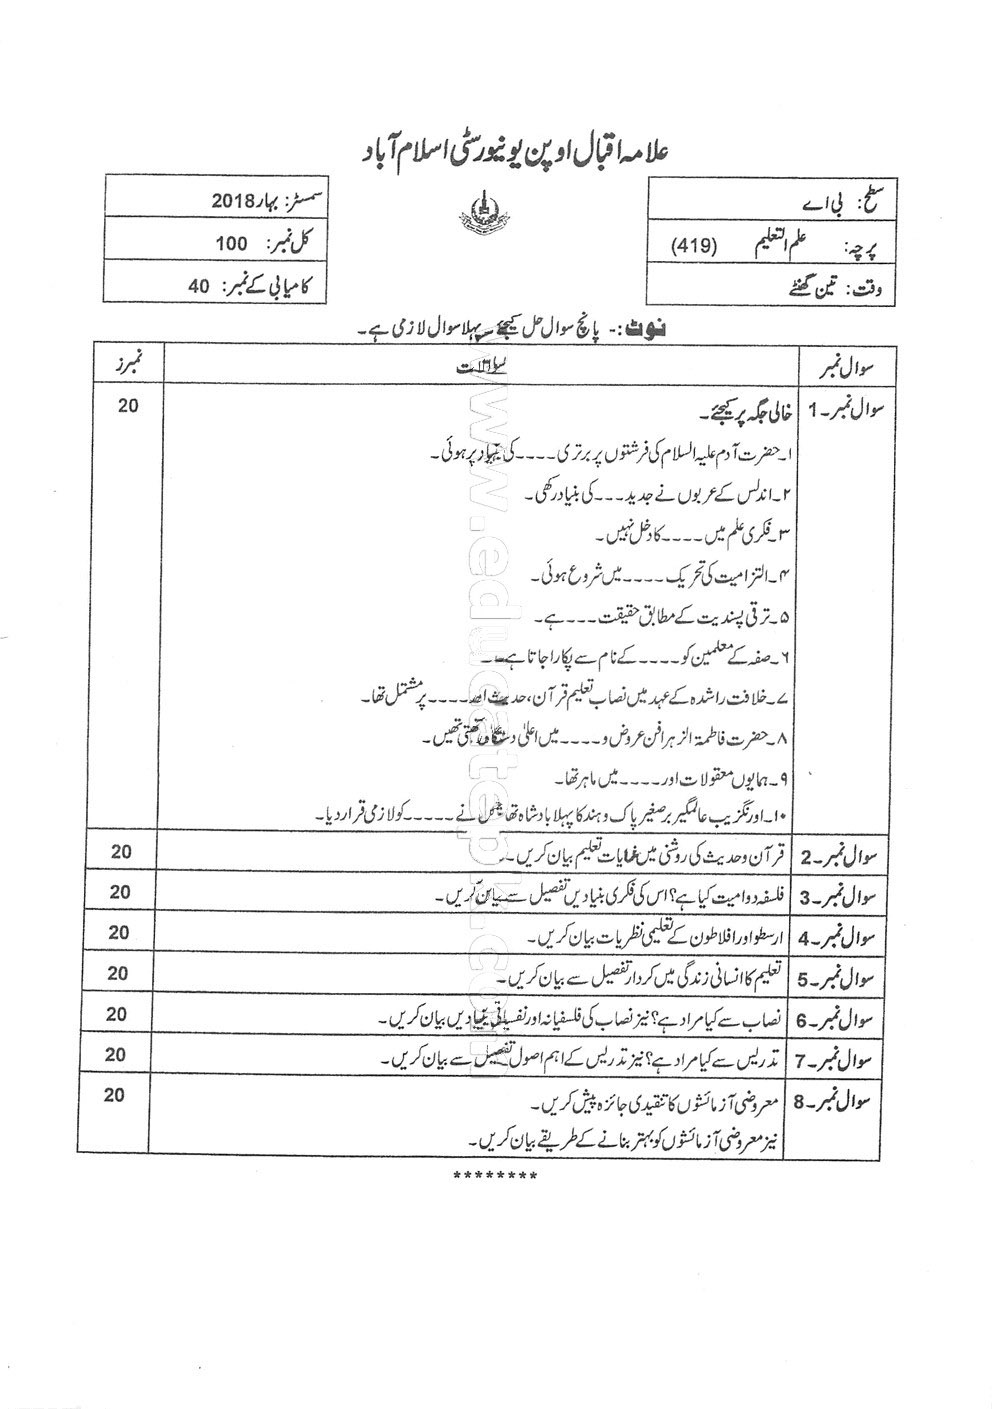 علامہ اقبال اوپن یونیورسٹی اسلام آباد
سطح: بی اے
پرچہ: علم التعلیم (419)
وقت: تین گھنٹے
سمسٹر: بہار 2018
کل نمبر: 100
کامیابی کے نمبر: 40
نوٹ:- پانچ سوال حل کیجئے۔ پہلا سوال لازمی ہے۔
سوال نمبر سوالات نمبرز
سوال نمبر۔1 خالی جگہ پر کیجئے۔ 20
۱۔حضرت آدم علیہ السلام کی فرشتوں پر برتری ۔۔۔۔کی بنیاد پر ہوئی۔
۲۔اندلس کے عربوں نے جدید۔۔۔کی بنیاد رکھی۔
۳۔فکری علم میں ۔۔۔۔کا دخل نہیں۔
۴۔التزامیت کی تحریک ۔۔۔۔میں شروع ہوئی۔
۵۔ترقی پسندیت کے مطابق حقیقت۔۔۔ہے۔
۶۔صفہ کے معلمین کو۔۔۔۔کے نام سے پکارا جاتا ہے۔
۷۔خلافت راشدہ کے عہد میں نصاب تعلیم قرآن، حدیث اور۔۔۔۔پر مشتمل تھا۔
۸۔حضرت فاطمۃ الزہرا فن عروض و۔۔۔۔میں اعلیٰ دستگاہ رکھتی تھیں۔
۹۔ہمایوں معقولات اور۔۔۔۔میں ماہر تھا۔
۱۰۔اورنگزیب عالمگیر برصغیر پاک و ہند کا پہلا بادشاہ تھا جس نے ۔۔۔۔۔کو لازمی قرار دیا۔
سوال نمبر۔2 قرآن وحدیث کی روشنی میں غایات تعلیم بیان کریں۔ 20
سوال نمبر۔3 فلسفہ دوامیت کیا ہے؟ اس کی فکری بنیادیں تفصیل سے بیان کریں۔ 20
سوال نمبر۔4 ارسطو اور افلاطون کے تعلیمی نظریات بیان کریں۔ 20
سوال نمبر۔5 تعلیم کا انسانی زندگی میں کردار تفصیل سے بیان کریں۔ 20
سوال نمبر۔6 نصاب سے کیا مراد ہے؟ نیز نصاب کی فلسفیانہ اور نفسیاتی بنیادیں بیان کریں۔ 20
سوال نمبر۔7 تدریس سے کیا مراد ہے؟ نیز تدریس کے اہم اصول تفصیل سے بیان کریں۔ 20
سوال نمبر۔8 معروضی آزمائشوں کا تنقیدی جائزہ پیش کریں۔ 20
نیز معروضی آزمائشوں کو بہتر بنانے کے طریقے بیان کریں۔
********
www.educatepk.com